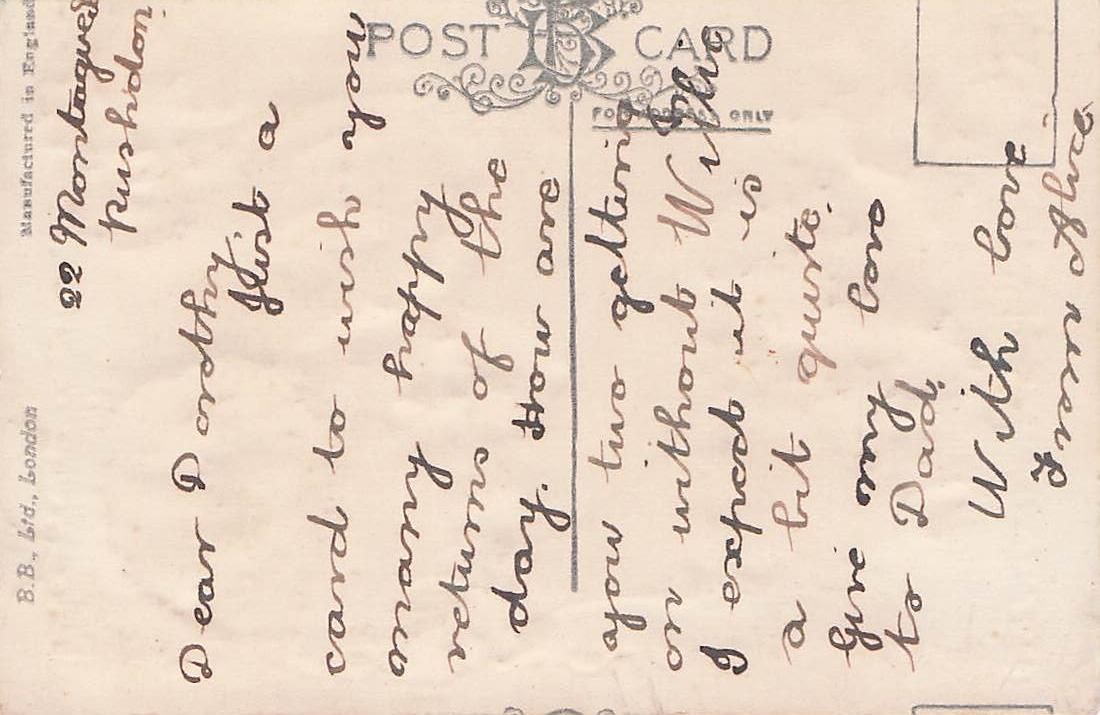 Manufactured in England
B.B., Ltd., London
POST CARD
FOR ADDRESS ONLY
22 Montague
Rushden
Dear Dorothy
Just a
card to wish you
many happy
returns of the
day. How are
you two getting
on without Willie
I expect it is
a bit quite.
Give my love
to Dad
With love